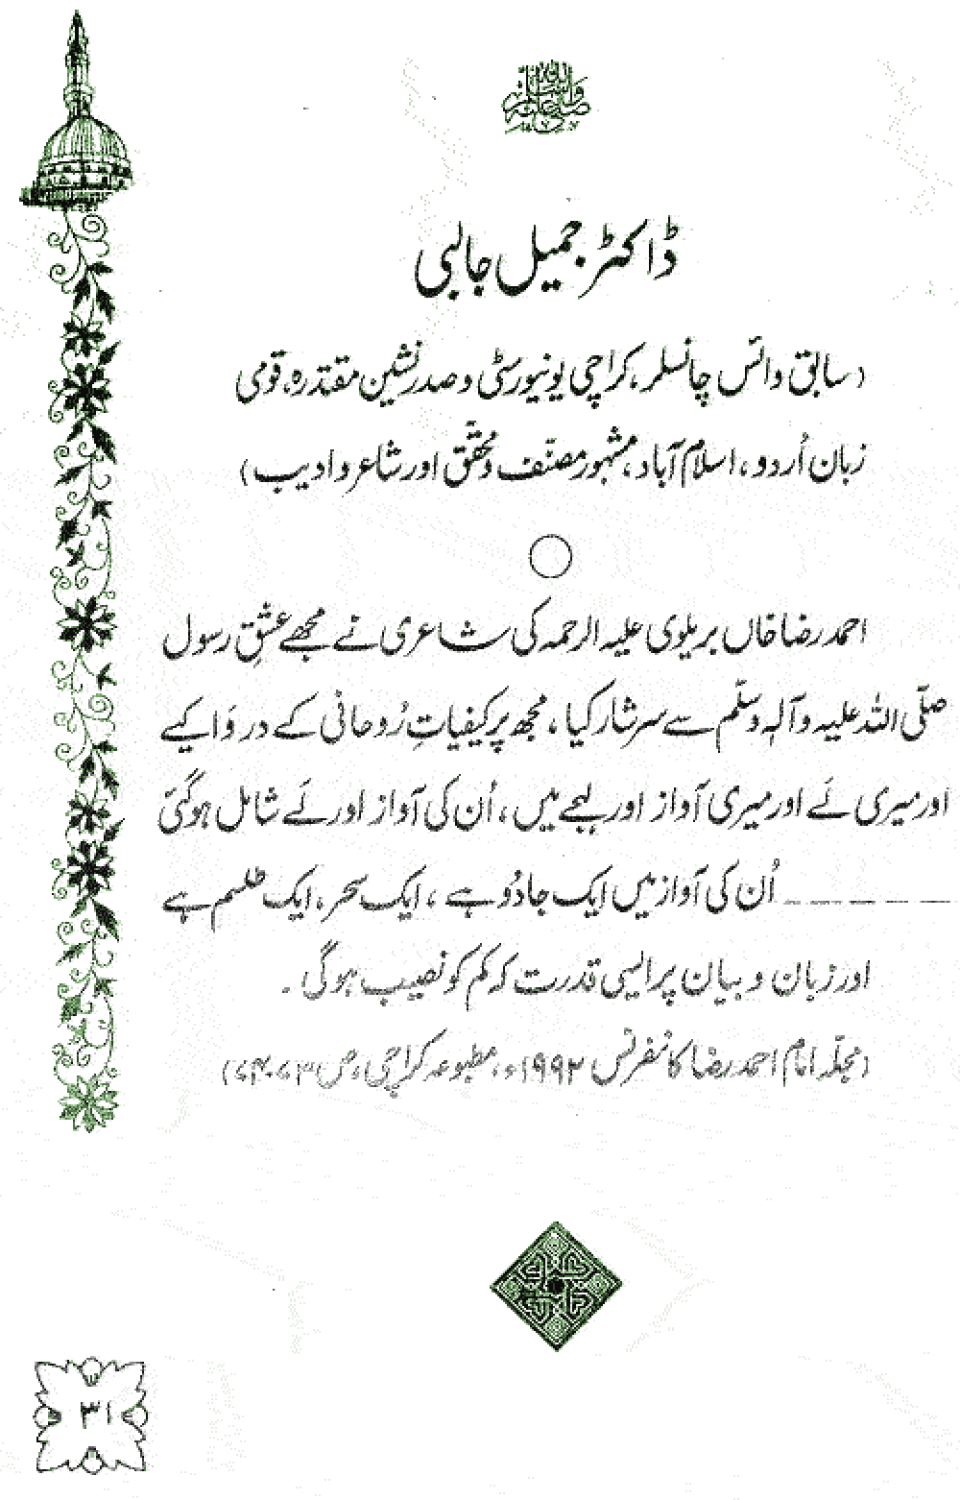 صلی اللہ علیہ وسلم
ڈاکٹر جمیل جالبی
(سابق وائس چانسلر، کراچی یونیورسٹی و صدر نشین مقتدرہ قومی
زبان اُردو، اسلام آباد، مشہور مصنّف و محقّق اور شاعر و ادیب)
احمد رضا خاں بریلوی علیہ الرحمہ کی شاعری نے مجھے عشقِ رسول
صلّی اللہ علیہ وآلہٖ وسلّم سے سرشار کیا، مجھ پر کیفیاتِ رُوحانی کے در وَا کیے
اور میری لَے اور میری آواز اور لہجے میں، اُن کی آواز اور لَے شامل ہوگئی
ـ ـ ـ ـ ـ ـ اُن کی آواز میں ایک جادُو ہے، ایک سحر، ایک طلسم ہے
اور زبان و بیان پر ایسی قدرت کہ کم کو نصیب ہوگی۔
(مجلّہ امام احمد رضا کانفرنس ۱۹۹۲ء، مطبوعہ کراچی، ص ۷۳،۷۴)
۳۱